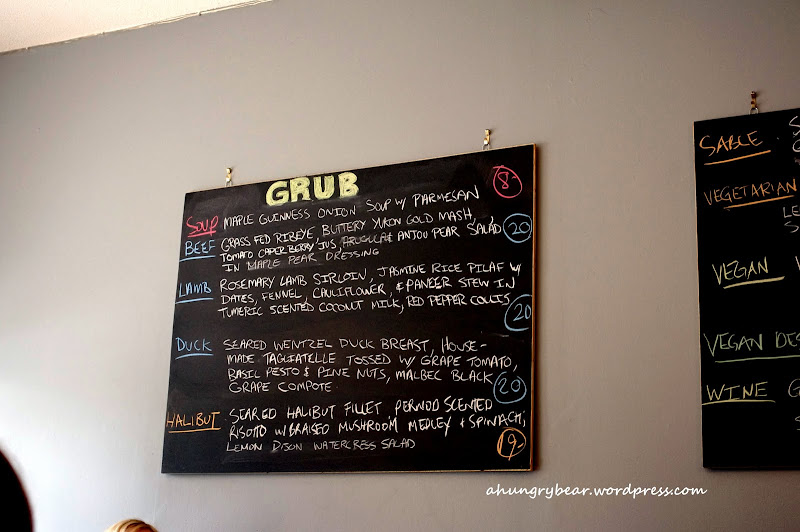 GRUB
SOUP MAPLE GUINNESS ONION SOUP W/ PARMESAN 8-
BEEF GRASS FED RIBEYE, BUTTERY YUKON GOLD MASH,
TOMATO CAPER BERRY JUS, ARUGULA & ANJOU PEAR SALAD 20
IN MAPLE PEAR DRESSING
LAMB ROSEMARY LAMB SIRLOIN, JASMINE RICE PILAF W/
DATES, FENNEL, CAULIFLOWER, & PANEER STEW IN
TUMERIC SCENTED COCONUT MILK, RED PEPPER COULIS
20
DUCK SEARED WENTZEL DUCK BREAST, HOUSE-
MADE TAGLIATELLE TOSSED W/ GRAPE TOMATO,
BASIL PESTO & PINE NUTS, MALBEC BLACK
GRAPE COMPOTE 20
HALIBUT SEARED HALIBUT FILLET, PERNOD SCENTED
RISOTTO W/ BRAISED MUSHROOM MEDLEY & SPINACH,
LEMON DIJON WATERCRESS SALAD 19-
SABLE
VEGETARIAN
VEGAN
VEGAN DES
WINE
ahungrybear.wordpress.com